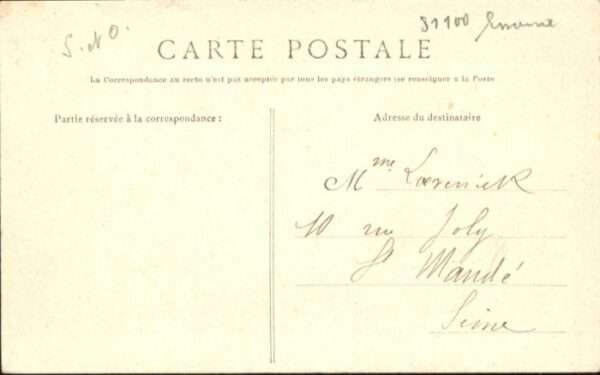 S. N O.
31100 Essonne
CARTE POSTALE
La Correspondance au recto n'est pas acceptée par tous les pays étrangers (se renseigner à la Poste
Partie réservée à la correspondance :
Adresse du destinataire
Mme
10 rue Joly
St Mandé
Seine